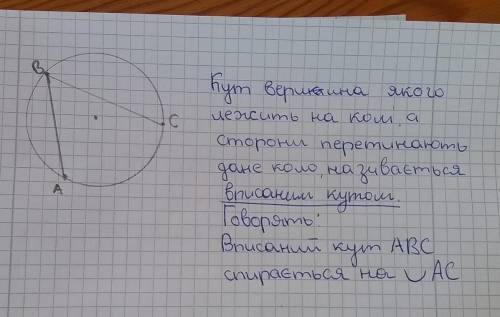 B
C
A
Кут вершина якого
лежить на колі, а
сторони перетинають
дане коло, називається
вписаним кутом.
Говорять:
Вписаний кут ABC
спирається на ◡ AC